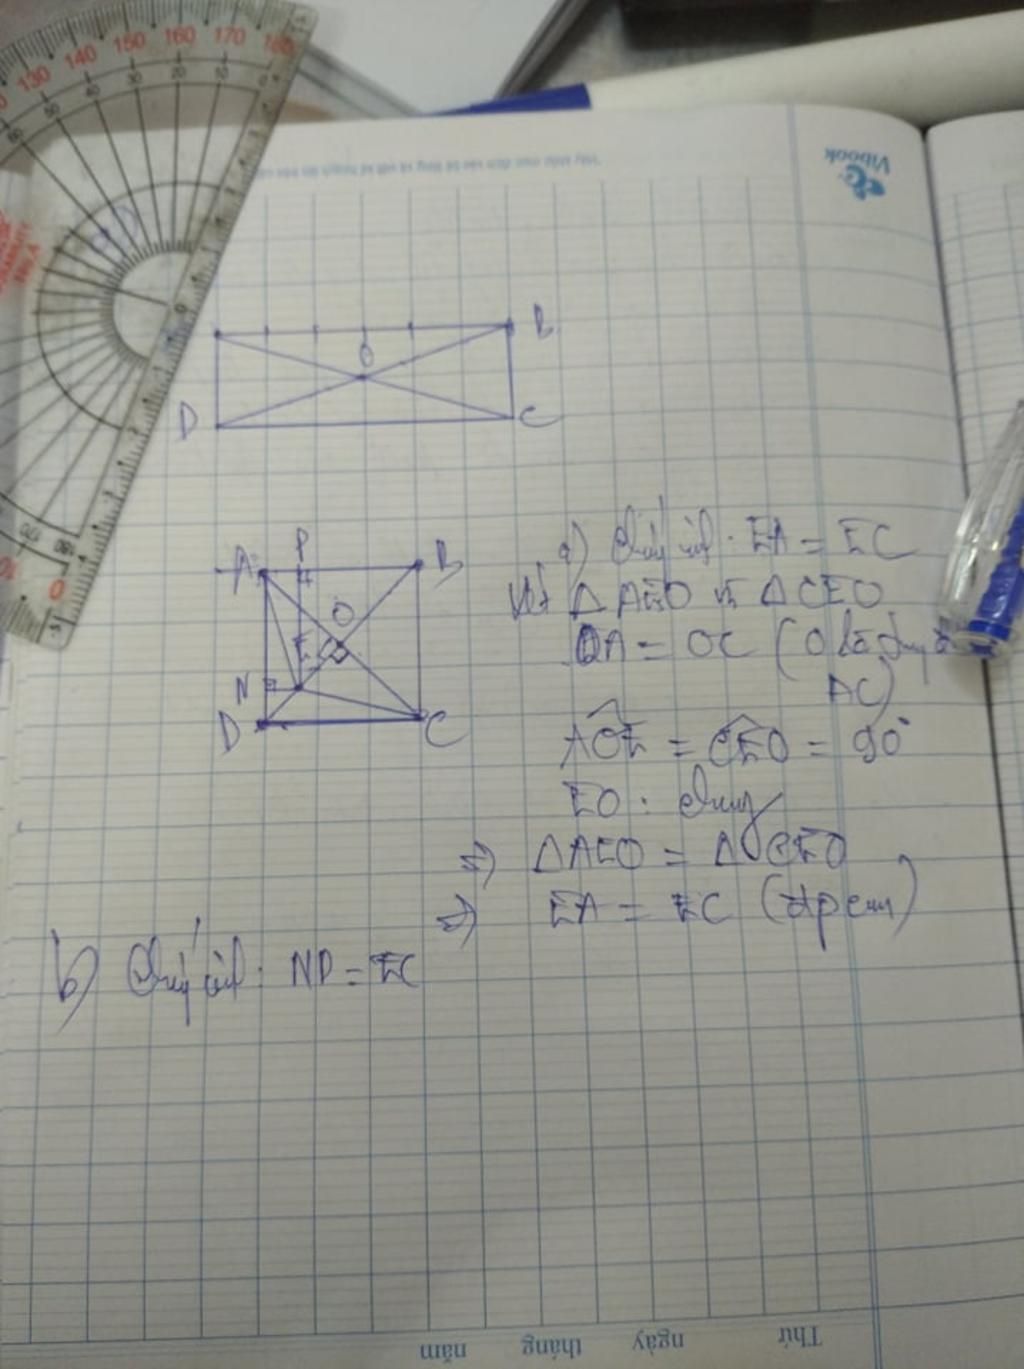 130 140 150 160 170 180
Vibook
B
O
D
C
A P B
O
E
N
D C
a) Chứng minh: EA = EC
Xét △AEO và △CEO
OA = OC (O là
AC)
AOE = CEO = 90°
EO: chung
=> △AEO = △CEO
=> EA = EC (đpcm)
b) Chứng minh: NP = EC
Thứ ngày tháng năm